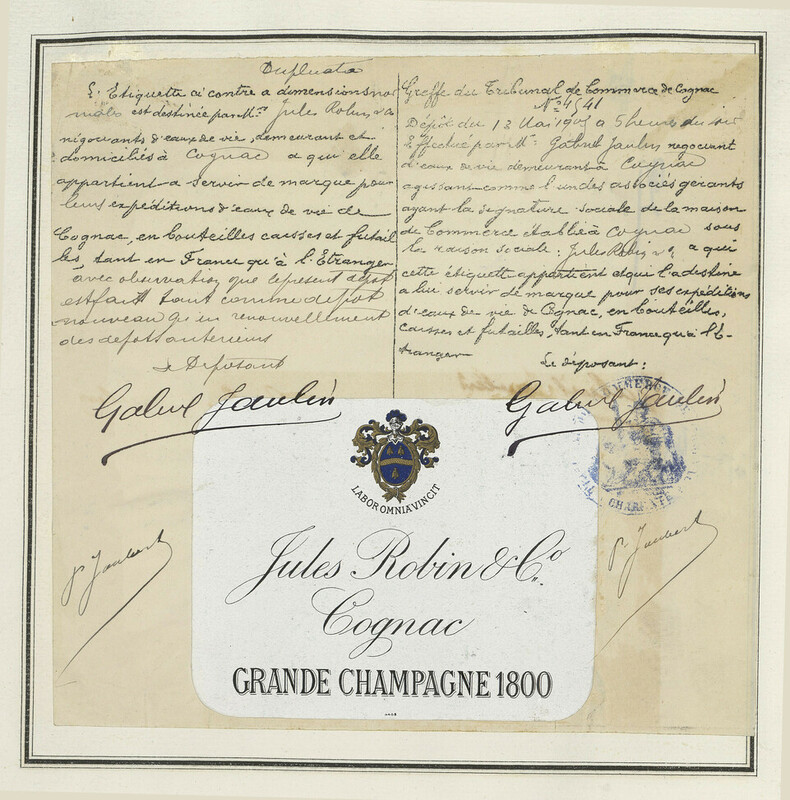 Duplicata
L'Etiquette ci contre a dimensions nor
males est destinée par M.rs Jules Robin & Co
négociants d'eaux de vie, demeurant et
domiciliés à Cognac a qui elle
appartient a servir de marque pour
leurs expéditions d'eaux de vie de
Cognac, en bouteilles caisses et futail
les tant en France qu'à l'Etranger
avec observation que le present dépot
est fait tant comme depot
nouveau qu'en renouvellement
des depots anterieurs
Le Deposant
Gabriel Jaulin
Greffe du Tribunal de Commerce de Cognac
No 4541
Dépôt du 12 Mai 1905 a 5 heures du soir
Effectué par M. Gabriel Jaulin, negociant
d'eaux de vie demeurant à Cognac
agissant comme l'un des associés gérants
ayant la signature sociale de la maison
de Commerce établie à Cognac sous
la raison sociale: Jules Robin & Co a qui
cette étiquette appartient et qui l'a destine
a lui servir de marque pour ses expéditions
d'eaux de vie de Cognac, en bouteilles,
caisses et futailles, tant en France qu'à l'E-
tranger
Le déposant:
Gabriel Jaulin
COMMERCE DE
CHARENTE
P. Jaubert
P. Jaubert
LABOR OMNIA VINCIT
Jules Robin & Co.
Cognac
GRANDE CHAMPAGNE 1800